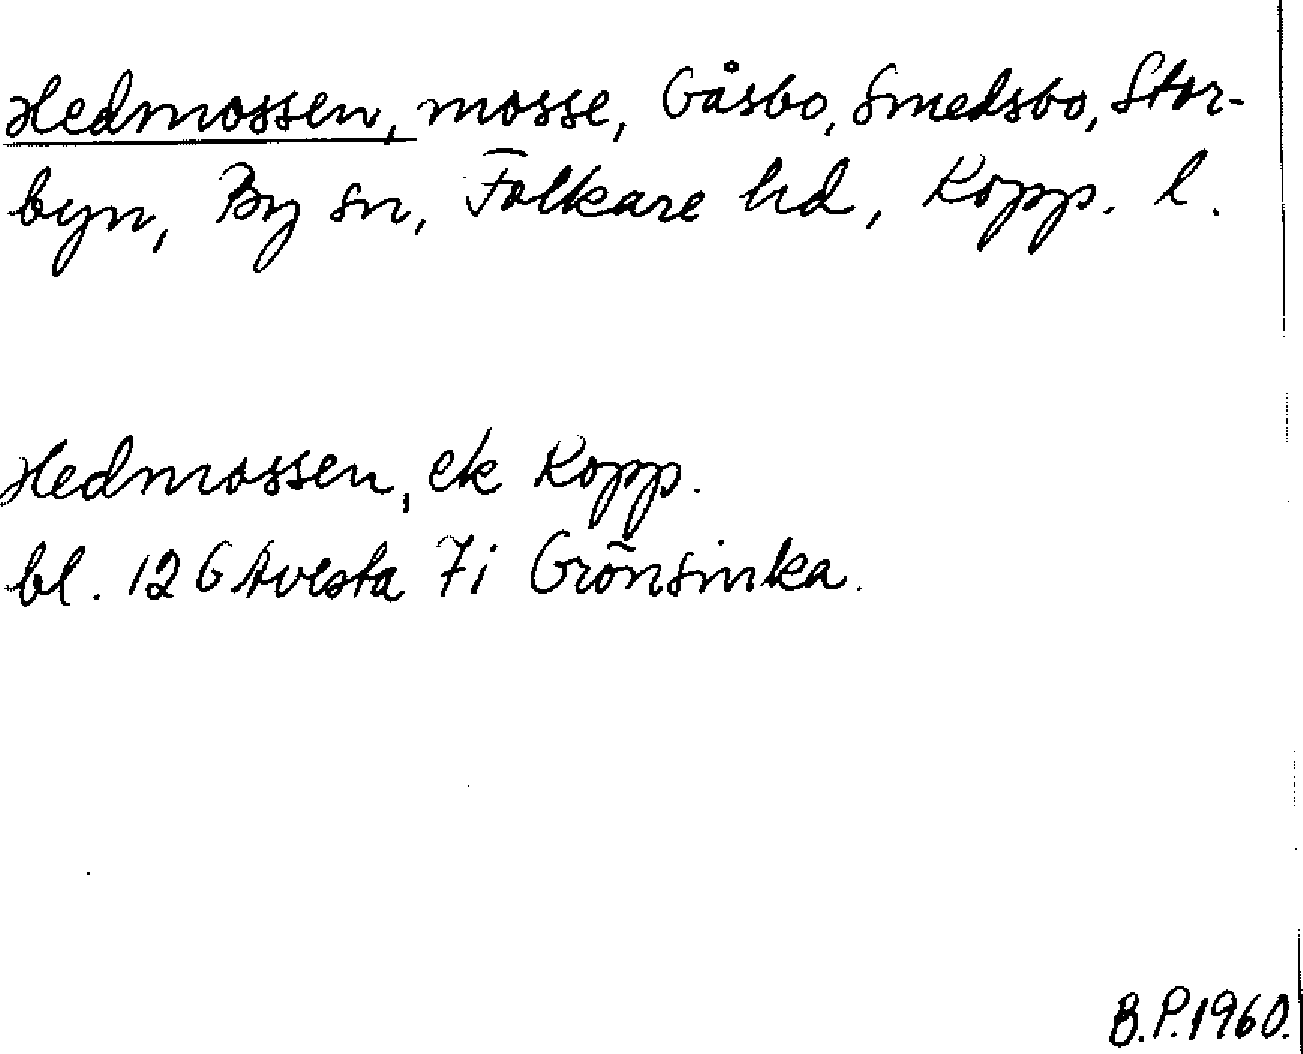 Hedmossen, mosse, Gåsbo, Smedsbo, Stor-
byn, By sn, Folkare hd, Kopp. l.
Hedmossen, ek Kopp.
bl. 12 G Avesta 7i Grönsinka.
B.P. 1960.